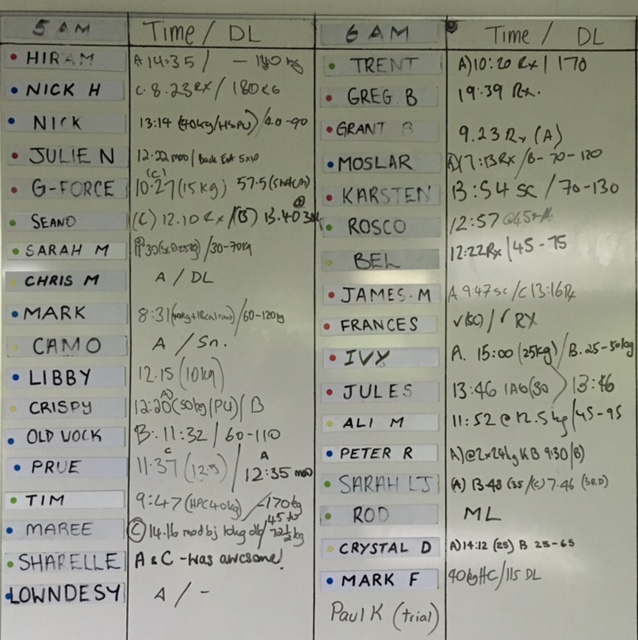 5 AM Time / DL
HIRAM A 14:35 / - 140 kg
NICK H C. 8.23 Rx / 180 KG
NICK 13:14 (40kg/HSPU) / 40-90
JULIE N 12:22 mod / Back Ext 5x10
G-FORCE (C) 10:27 (15kg) 57.5 (snatch)
SEANO (C) 12.10 Rx / (B) 13.40
SARAH M /30-70kg
CHRIS M A / DL
MARK 8:31 /60-120kg
CAMO A / Sn.
LIBBY 12.15 (10kg)
CRISPY A) 12:20 (50kg/PU) / B
OLD JOCK B: 11:32 / 60-110
PRUE C 11.37 (12.5) / A 12:35 mod
TIM 9:47 (HPC 40kg) /-170kg
MAREE (C) 14.16 mod bj 10kg db /
SHARELLE A & C - was awesome!
LOWNDESY A / -
6 AM Time / DL
TRENT A) 10:20 Rx / 170
GREG B 19.39 Rx.
GRANT B 9.23 Rx (A)
MOSLAR 17:13 Rx / B- 70-120
KARSTEN 13:54 SC / 70-130
ROSCO 12:57
BEL 12:22 Rx / 45-75
JAMES.M A 9.47 sc / C 13:16 Rx
FRANCES / RX
IVY A. 15:00 (25kg) / B. 25-50kg
JULES 13:46 / 13:46
ALI M 11:52 @ 12.5kg / 45-95
PETER R A) @ 2x24kg KB 9:30 / B)
SARAH LJ (A) 13.48 (35 / (C) 7.46 (3RD)
ROD ML
CRYSTAL D A) 14:12 (25) B 25-65
MARK F 40kg HC / 115 DL
Paul K (trial)